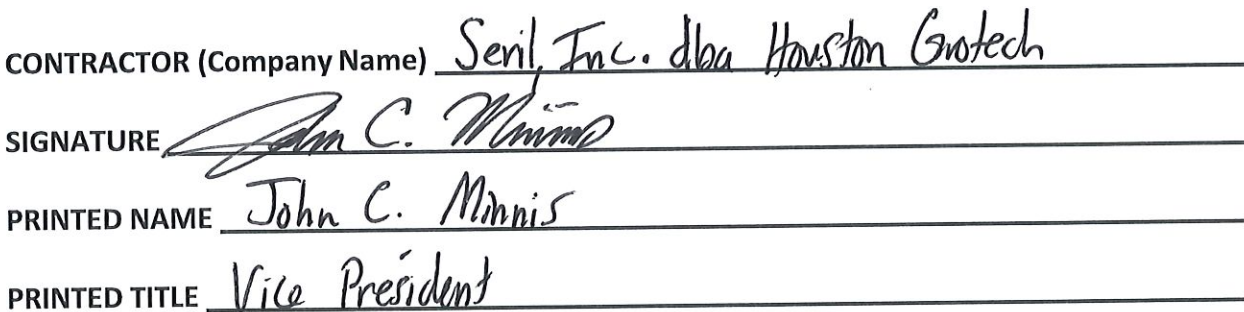 CONTRACTOR (Company Name) Seril, Inc. dba Houston Grotech
SIGNATURE John C. Minnis
PRINTED NAME John C. Minnis
PRINTED TITLE Vice President